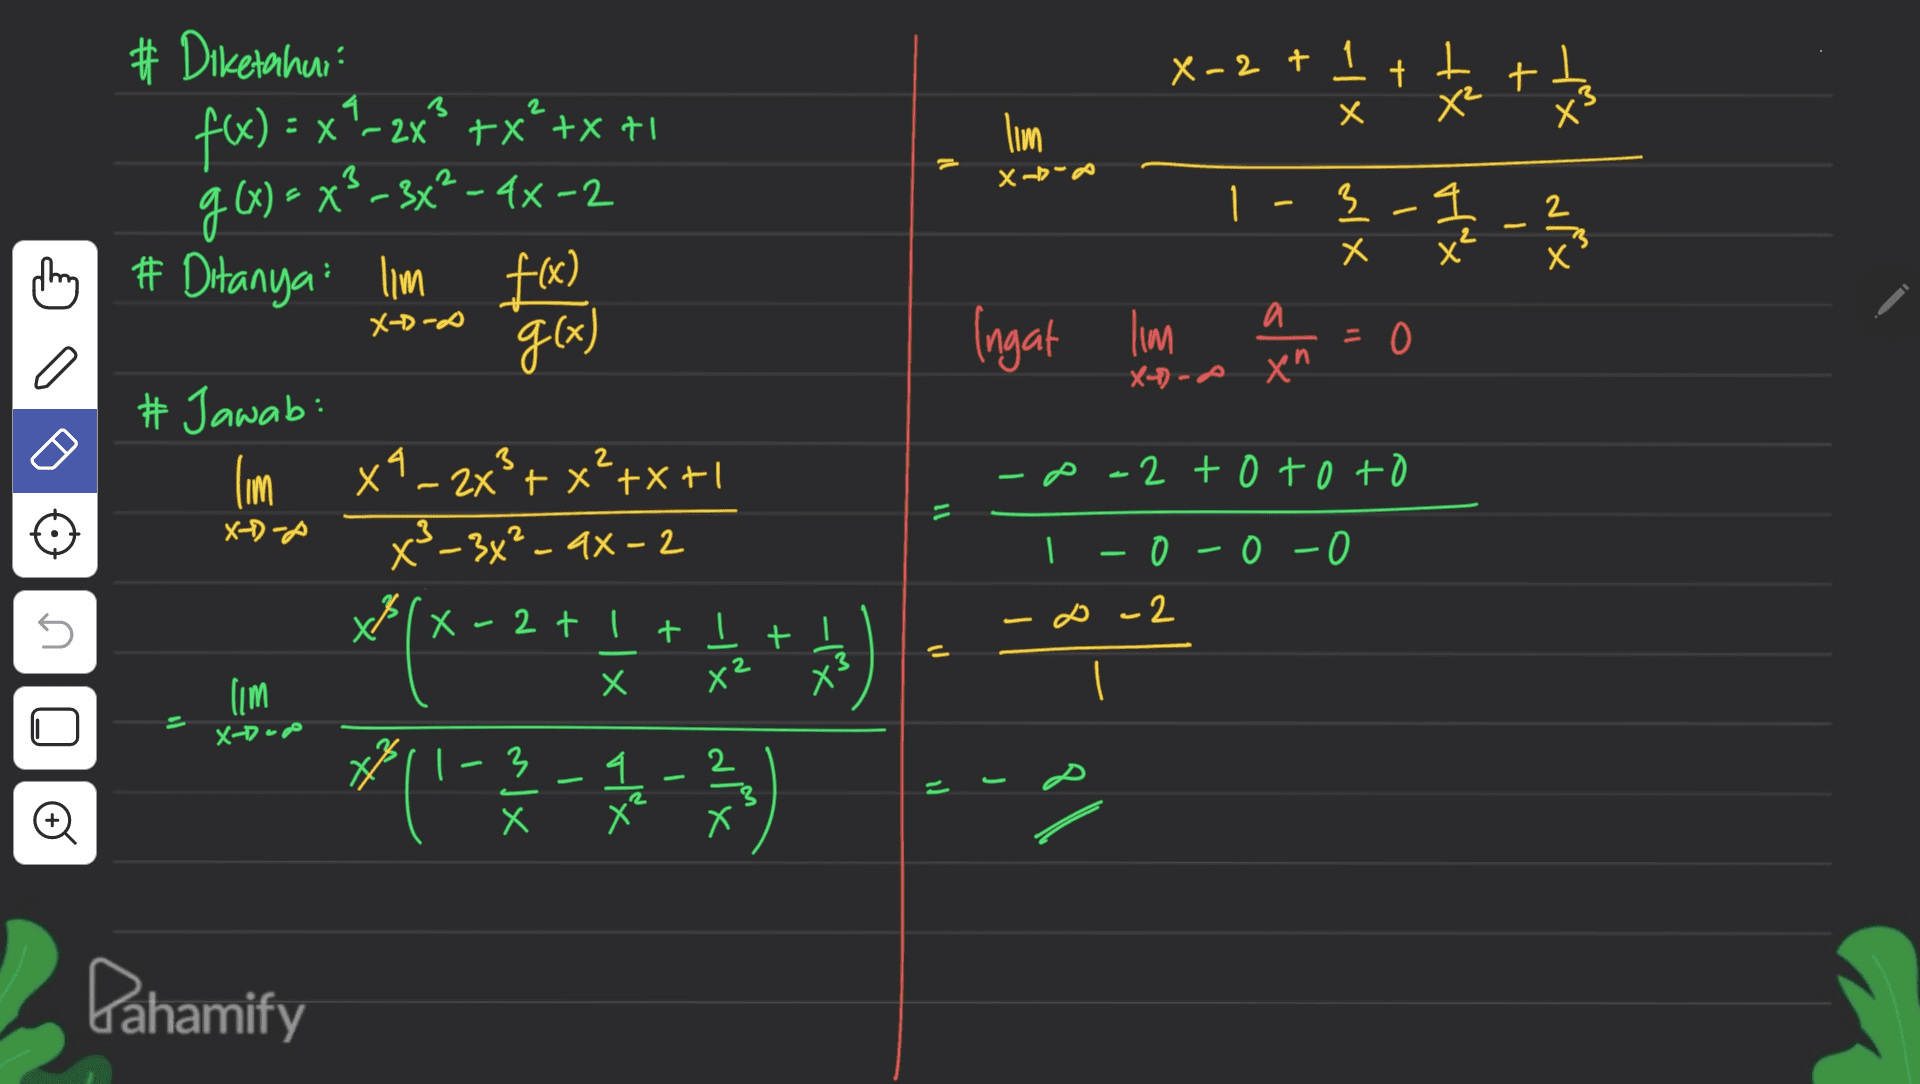 # Diketahui:
f(x) = x⁴ - 2x³ + x² + x + 1
g(x) = x³ - 3x² - 4x - 2
# Ditanya: lim x→-∞ f(x)/g(x)
# Jawab:
lim x→-∞ (x⁴ - 2x³ + x² + x + 1)/(x³ - 3x² - 4x - 2)
= lim x→-∞ x³(x - 2 + 1/x + 1/x² + 1/x³)/x³(1 - 3/x - 4/x² - 2/x³)
= lim x→-∞ (x - 2 + 1/x + 1/x² + 1/x³)/(1 - 3/x - 4/x² - 2/x³)
Ingat lim x→-∞ a/xⁿ = 0
= (-∞ - 2 + 0 + 0 + 0)/(1 - 0 - 0 - 0)
= (-∞ - 2)/1
= -∞
Pahamify